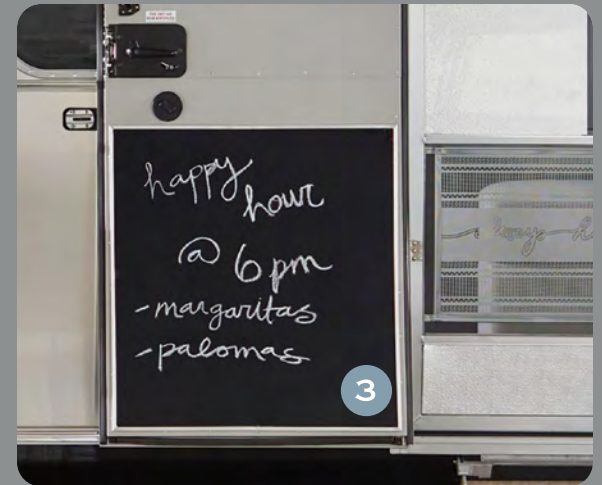 happy
hour
@ 6 pm
-margaritas
-palomas
3
always h